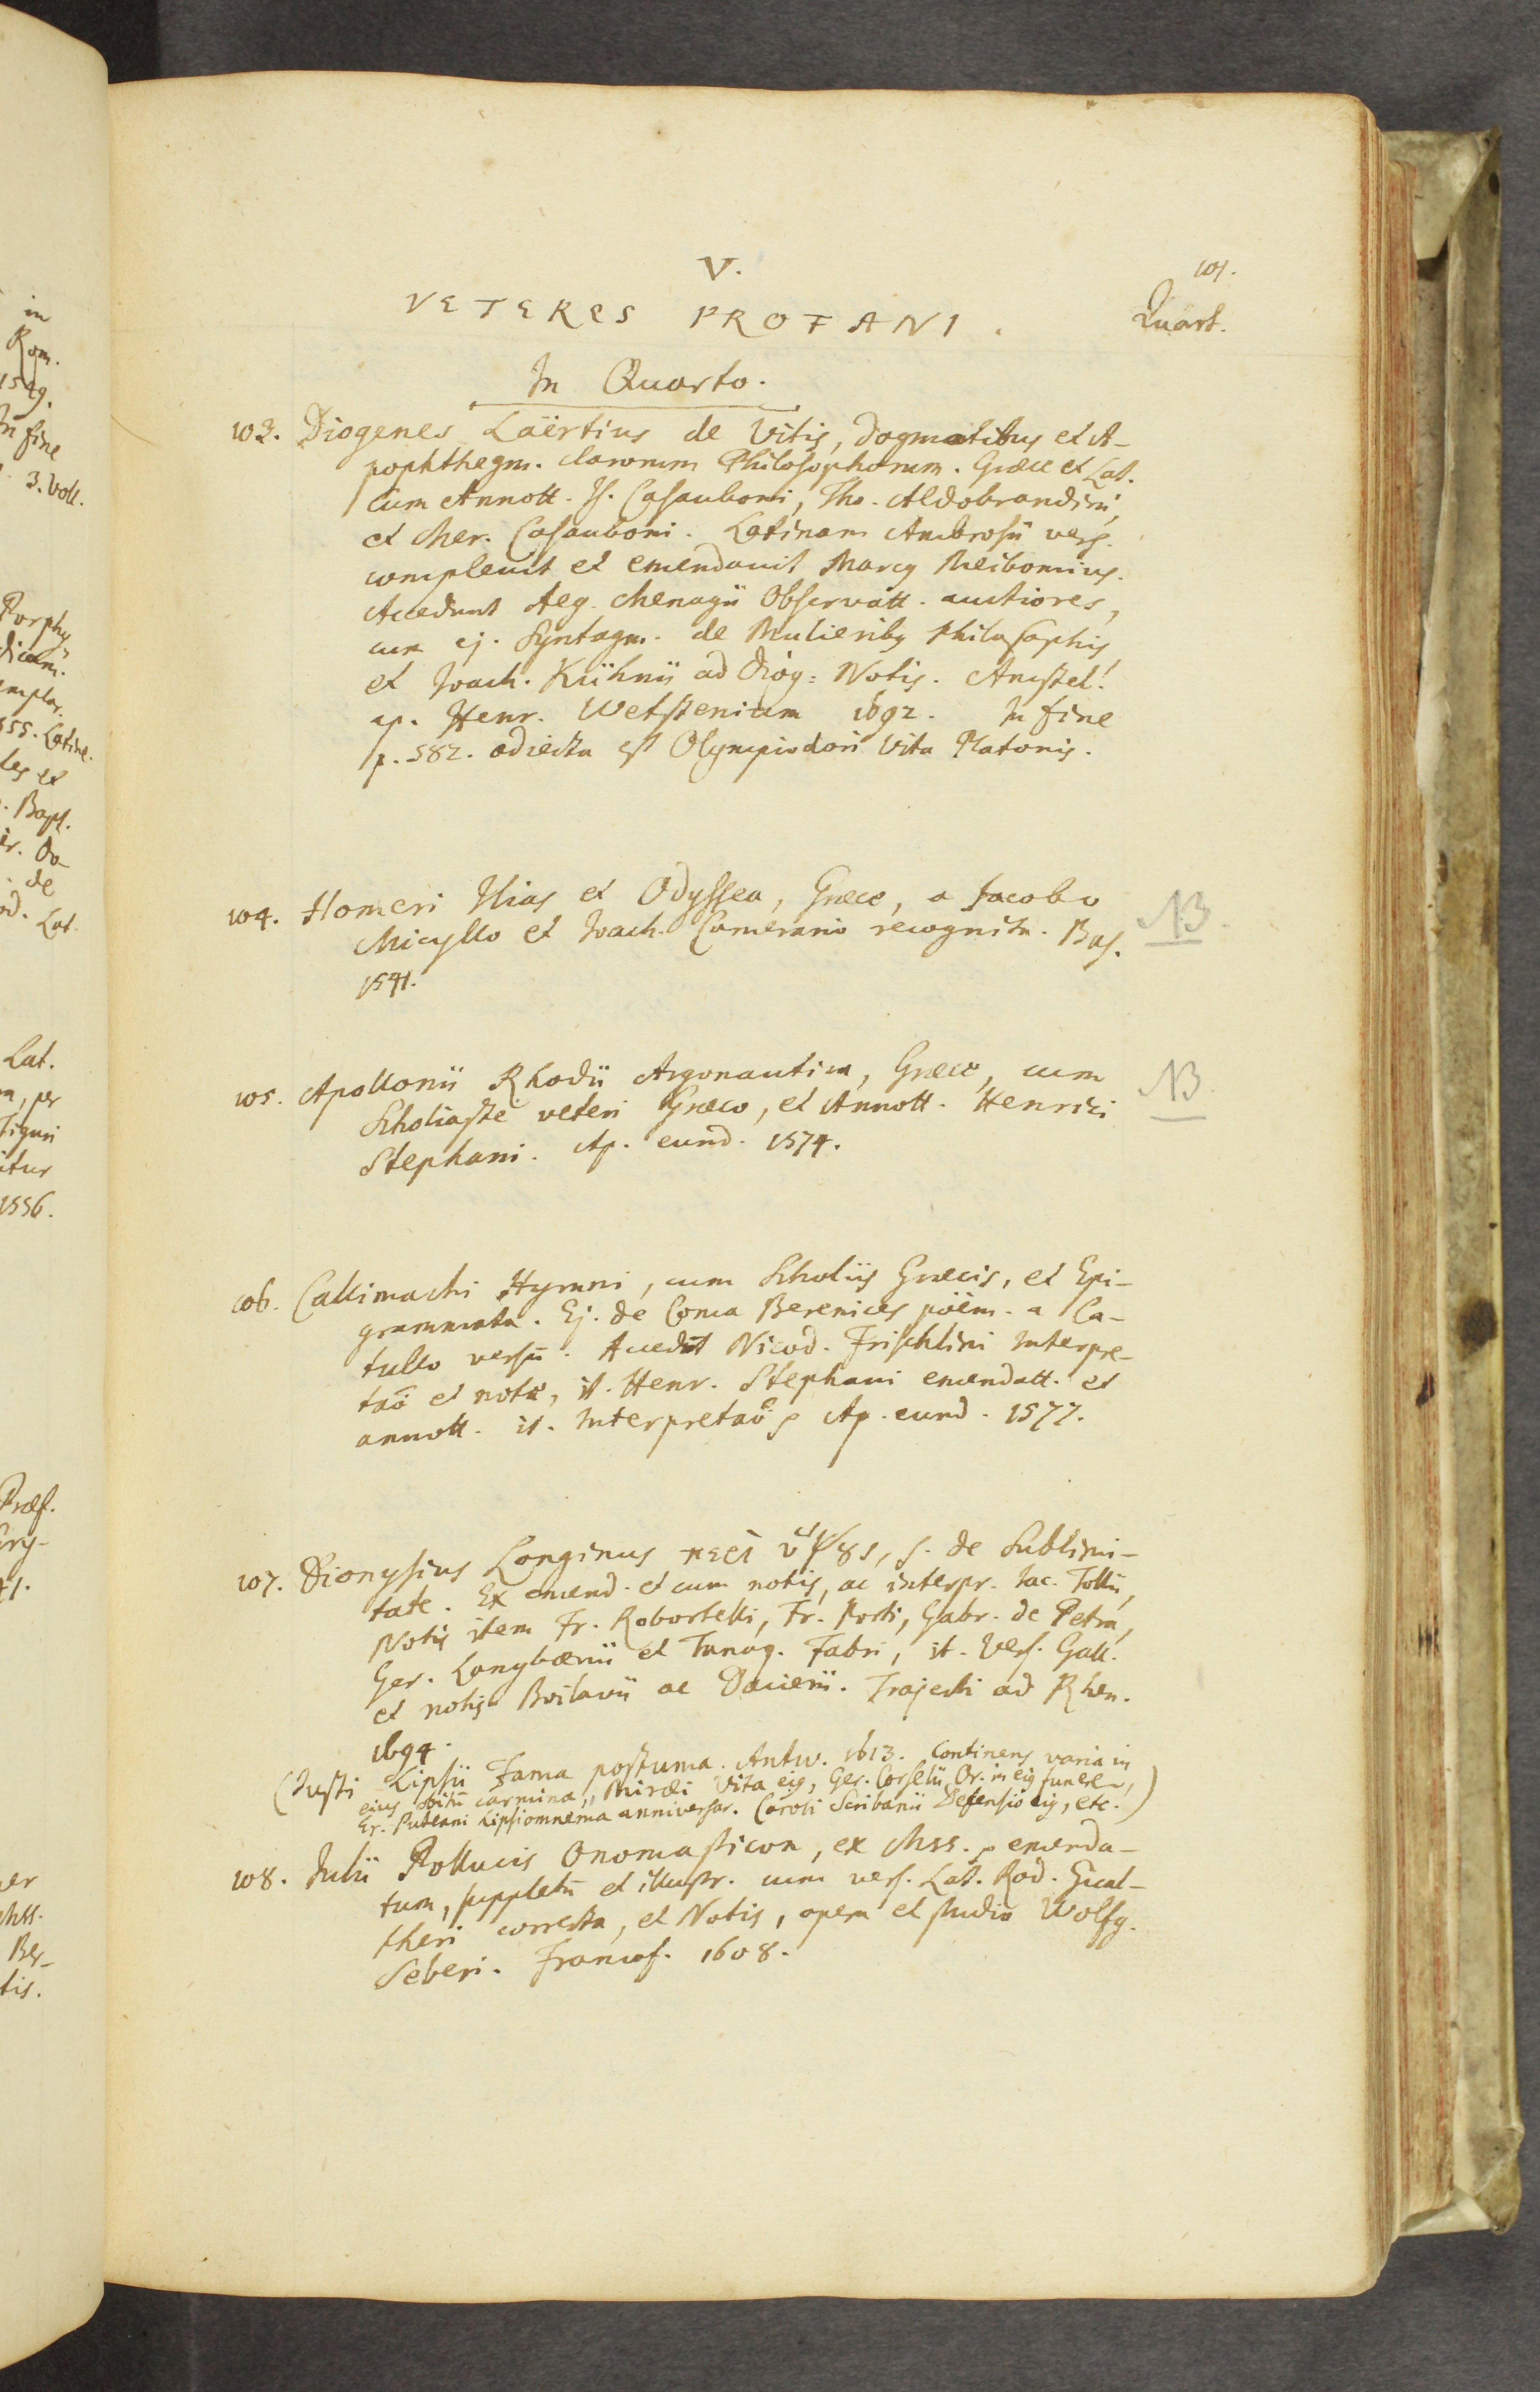 V.
101.
VETERES PROFANI.
Quart.
In Quarto.
103. Diogenes Laërtius de Vitis, dogmatibus et A-
pophthegm. clarorum Philosophorum. Græce et Lat.
cum Annott. Is. Casauboni, Tho. Aldobrandini,
et Mer. Casauboni. Latinam Ambrosii vers.
complevit et emendavit Marcus Meibomius.
Accedunt Aeg. Menagii Observatt. auctiores,
cum ej. Syntagm. de Mulieribus Philosophis,
et Joach. Kühnii ad Diog: Notis. Amstel.
ap. Henr. Wetstenium 1692. In fine
p. 582. adiecta est Olympiodori Vita Platonis.
104. Homeri Ilias et Odyssea, Græce, a Jacobo
Micyllo et Joach. Camerario recognita. Bas.
1541.
NB.
105. Apollonii Rhodii Argonautica, Græce, cum
Scholiaste veteri Græco, et Annott. Henrici
Stephani. Ap. eund. 1574.
NB
106. Callimachi Hymni, cum Scholiis Græcis, et Epi-
grammata. Ej. de Coma Berenices poëm. a Ca-
tullo versū. Accedūt Nicod. Frischlini Interpre-
taõ et notæ, it. Henr. Stephani emendatt. et
annott. it. Interpretaõ Ap. eund. 1577.
107. Dionysius Longinus περὶ ὕψȣς, s. de Sublimi-
tate. Ex emend. et cum notis, ac interpr. Jac. Tollii,
Notis item Fr. Robortelli, Fr. Porti, Gabr. de Petra,
Ger. Langbænii et Tanaq. Fabri, it. Vers. Gall.
et notis Boilavii ac Dacierii. Trajecti ad Rhen.
1694.
(Justi Lipsii Fama postuma. Antw. 1613. Continens varia in
eius obitū carmina, Miræi Vita eius, Ger. Corselii Or. in eius funere,
Er. Puteani Lipsiomnema anniversar. Caroli Scribanii Defensiõ eius, etc.)
108. Julii Pollucis Onomasticon, ex Mss. emenda-
tum, suppletū et illustr. cum vers. Lat. Rod. Gual-
theri correcta, et Notis, opera et studio Wolfg.
Seberi. Francof. 1608.
in
Rom.
1549.
In fine
3. Voll.
Porphy
dicam.
555. Latine.
les et
Bapt.
de
Lat.
Lat.
, per
Tiguri
itur
1556.
Præf.
Gry-
41.
Mss.
Ber-
tis.